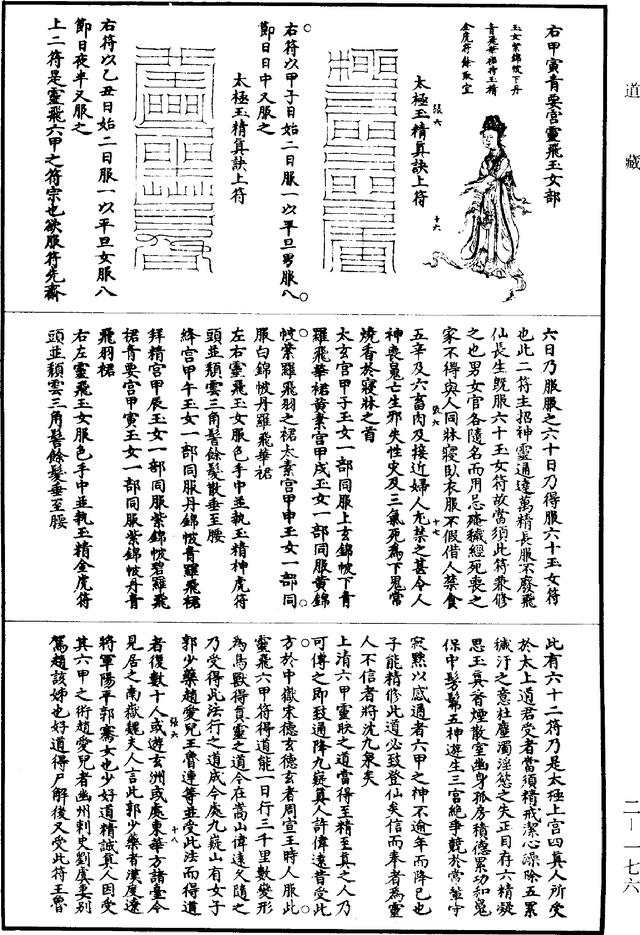 道藏
右甲寅青要宮靈飛玉女部
玉女紫錦帔下丹
青飛華裙荷玉精
金虎符餘取宜
太極玉精真訣上符
張六
十六
右符以甲子日始二日服一以平旦男服八
節日日中又服之
太極玉精真訣上符
右符以乙丑日始二日服一以平旦女服八
節日夜半又服之
上二符是靈飛六甲之符宗也欲服符先齋
六日乃服服之六十日乃得服六十玉女符
也此二符主招神靈通達萬精長服不廢飛
仙長生既服六十玉女符故當須此符兼修
之也男女官各隨名而用忌殗穢經死喪之
家不得與人同牀寢臥衣服不假借人禁食
張六
十七
五辛及六畜肉及接近婦人尤禁之甚令人
神喪鬼亡生邪失性史及三氣死為下鬼常
燒香於寢牀之首
太玄宮甲子玉女一部同服上玄錦帔下青
羅飛華裙黃素宮甲戌玉女一部同服黃錦
帔紫羅飛羽之裙太素宮甲申玉女一部同
服白錦帔丹羅飛華裙
左右靈飛玉女服色手中並執玉精神虎符
頭並頹雲三角髻餘髮散垂至腰
絳宮甲午玉女一部同服丹錦帔青羅飛裙
拜精宮甲辰玉女一部同服紫錦帔碧羅飛
裙青要宮甲寅玉女一部同服紫錦帔丹青
飛羽裙
右左靈飛玉女服色手中並執玉精金虎符
頭並頹雲三角髻餘髮垂至腰
此有六十二符乃是太極上宮四真人所受
於太上道君受者當須精戒潔心澡除五累
穢汙之意杜塵濁淫慾之失正目存六精凝
思玉真香煙散室幽身孤房積德累功和鬼
保中髣髴五神遊生三宮絕爭競於常輩守
寂默以感通者六甲之神不逾年而降已也
子能精修此道必致登仙矣信而奉者為靈
人不信者將沈九泉矣
上清六甲靈昳之道當得至精至真之人乃
可傳之即致通降九嶷真人許偉遠昔受此
方於中嶽宋德玄德玄者周宣王時人服此
靈飛六甲符得道能一日行三千里數變形
為鳥獸得真靈之道今在嵩山偉遠久隨之
乃受得此法行之道成今處九嶷山有女子
郭少藥趙愛兒王魯連等並受此法而得道
張六
十八
者復數十人或遊玄洲或處東華方諸臺今
見居之南嶽魏夫人言此郭少藥者漢度遼
將軍陽平郭騫女也少好道精誠真人因受
其六甲之術趙愛兒者幽州刺史劉虞妻別
駕趙該姊也好道得尸解後又受此符王魯
二一一七六